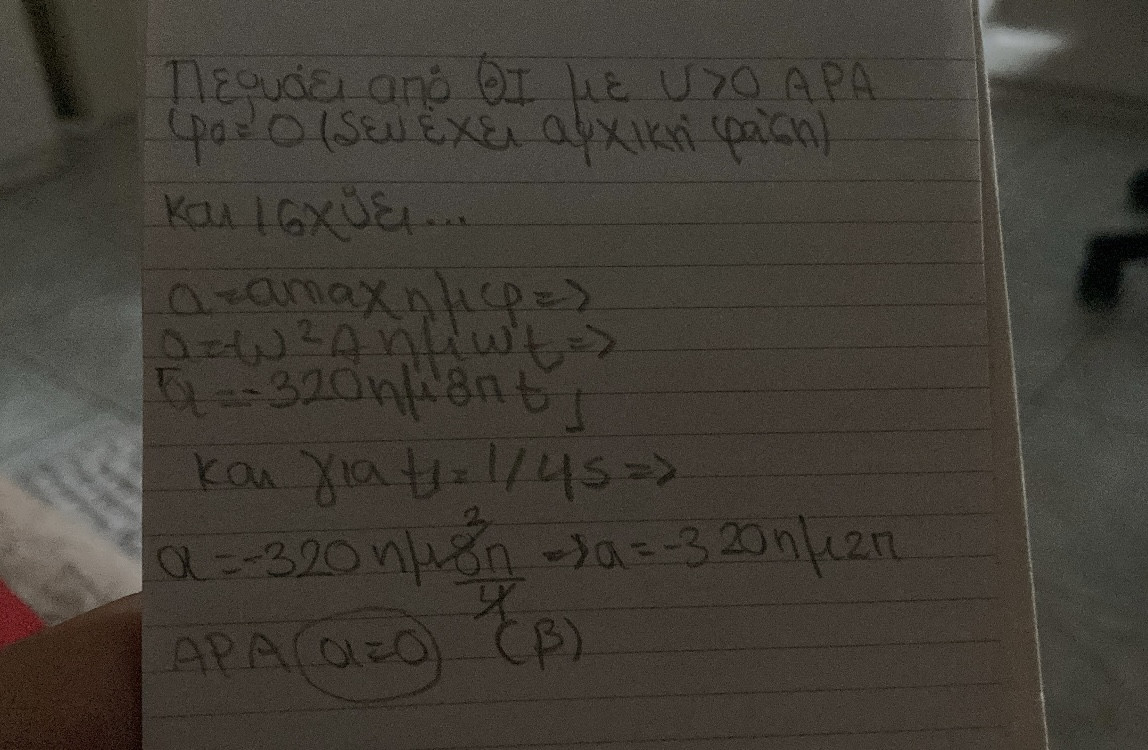 Περνάει από ΘΙ με υ>0 ΑΡΑ
φο=0 (δεν έχει αρχική φάση)
και ισχύει...
α=αmax ημφ=>
α=-ω²Α ημωt=>
α=-320ημ8πt
και για t₁=1/4s=>
α=-320ημ8π/4 => α=-320ημ2π
ΑΡΑ α=0 (β)